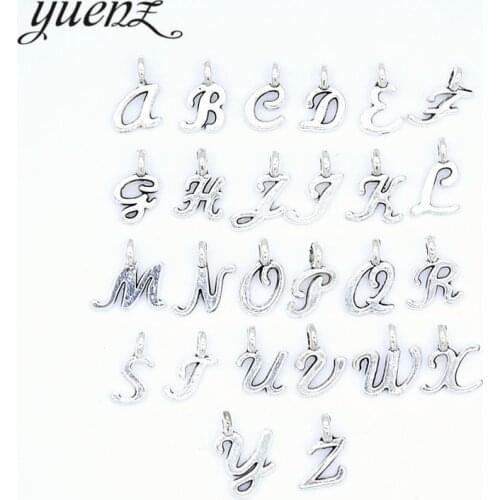 yuenz
A B C D E F
G H J I K L
M N O P Q R
S T U V W X
Y Z